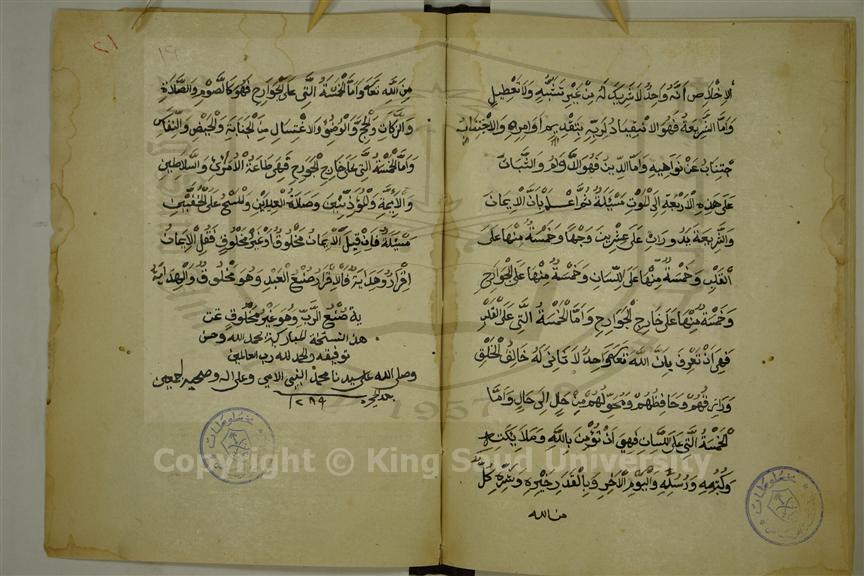 الاخلاص انّه واحد لا شريك له من غير تشبيه ولا تعطيل
وامّا الشريعة فهو الانقياد لربه بتقديم اوامره والاجتناب
جتناب عن نواهيه وامّا الدين فهو الدوام والثبات
على هذه الاربعة الى الموت مسئلة ثم اعلم بان الايمان
والشريعة يدوران على عشرين وجها وخمسة منها على
القلب وخمسة منها على اللسان وخمسة منها على الجوارح
وخمسة منها على خارج الجوارح وامّا الخمسة التى على القلب
فهى ان تعرف بان الله تعالى واحد لا ثانى له خالق الخلق
ورازقهم وحافظهم ومحولهم من حال الى حال وامّا
الخمسة التى على اللسان فهى ان تؤمن بالله وملايكته
وكتبه ورسله واليوم الاخر وبالقدر خيره وشره كل
من الله
٢١
من الله تعا وامّا الخمسة التى على الجوارح فهو كالصوم والصلاة
والزكات والحج والوضوء والاغتسال من الجنابة والحيض والنفاس
وامّا الخمسة التى على خارج الجوارح فهى طاعة الامراء والسلاطين
والائمة والمؤذنين وصلاة العيدين والمسح على الخفين
مسئلة فان قيل الايمان مخلوق او غير مخلوق فقل الايمان
اقرار وهداية فالاقرار صنع العبد وهو مخلوق والهداية
ية صنع الرب وهو غير مخلوق تمت
هذا النسخة المباركة بحمد الله وحسن
توفيقه والحمد لله رب العالمين
وصلى الله على سيدنا محمد النبي الامي وعلى اله وصحبه اجمعين
١٢٩٤
1957
Copyright © King Saud University